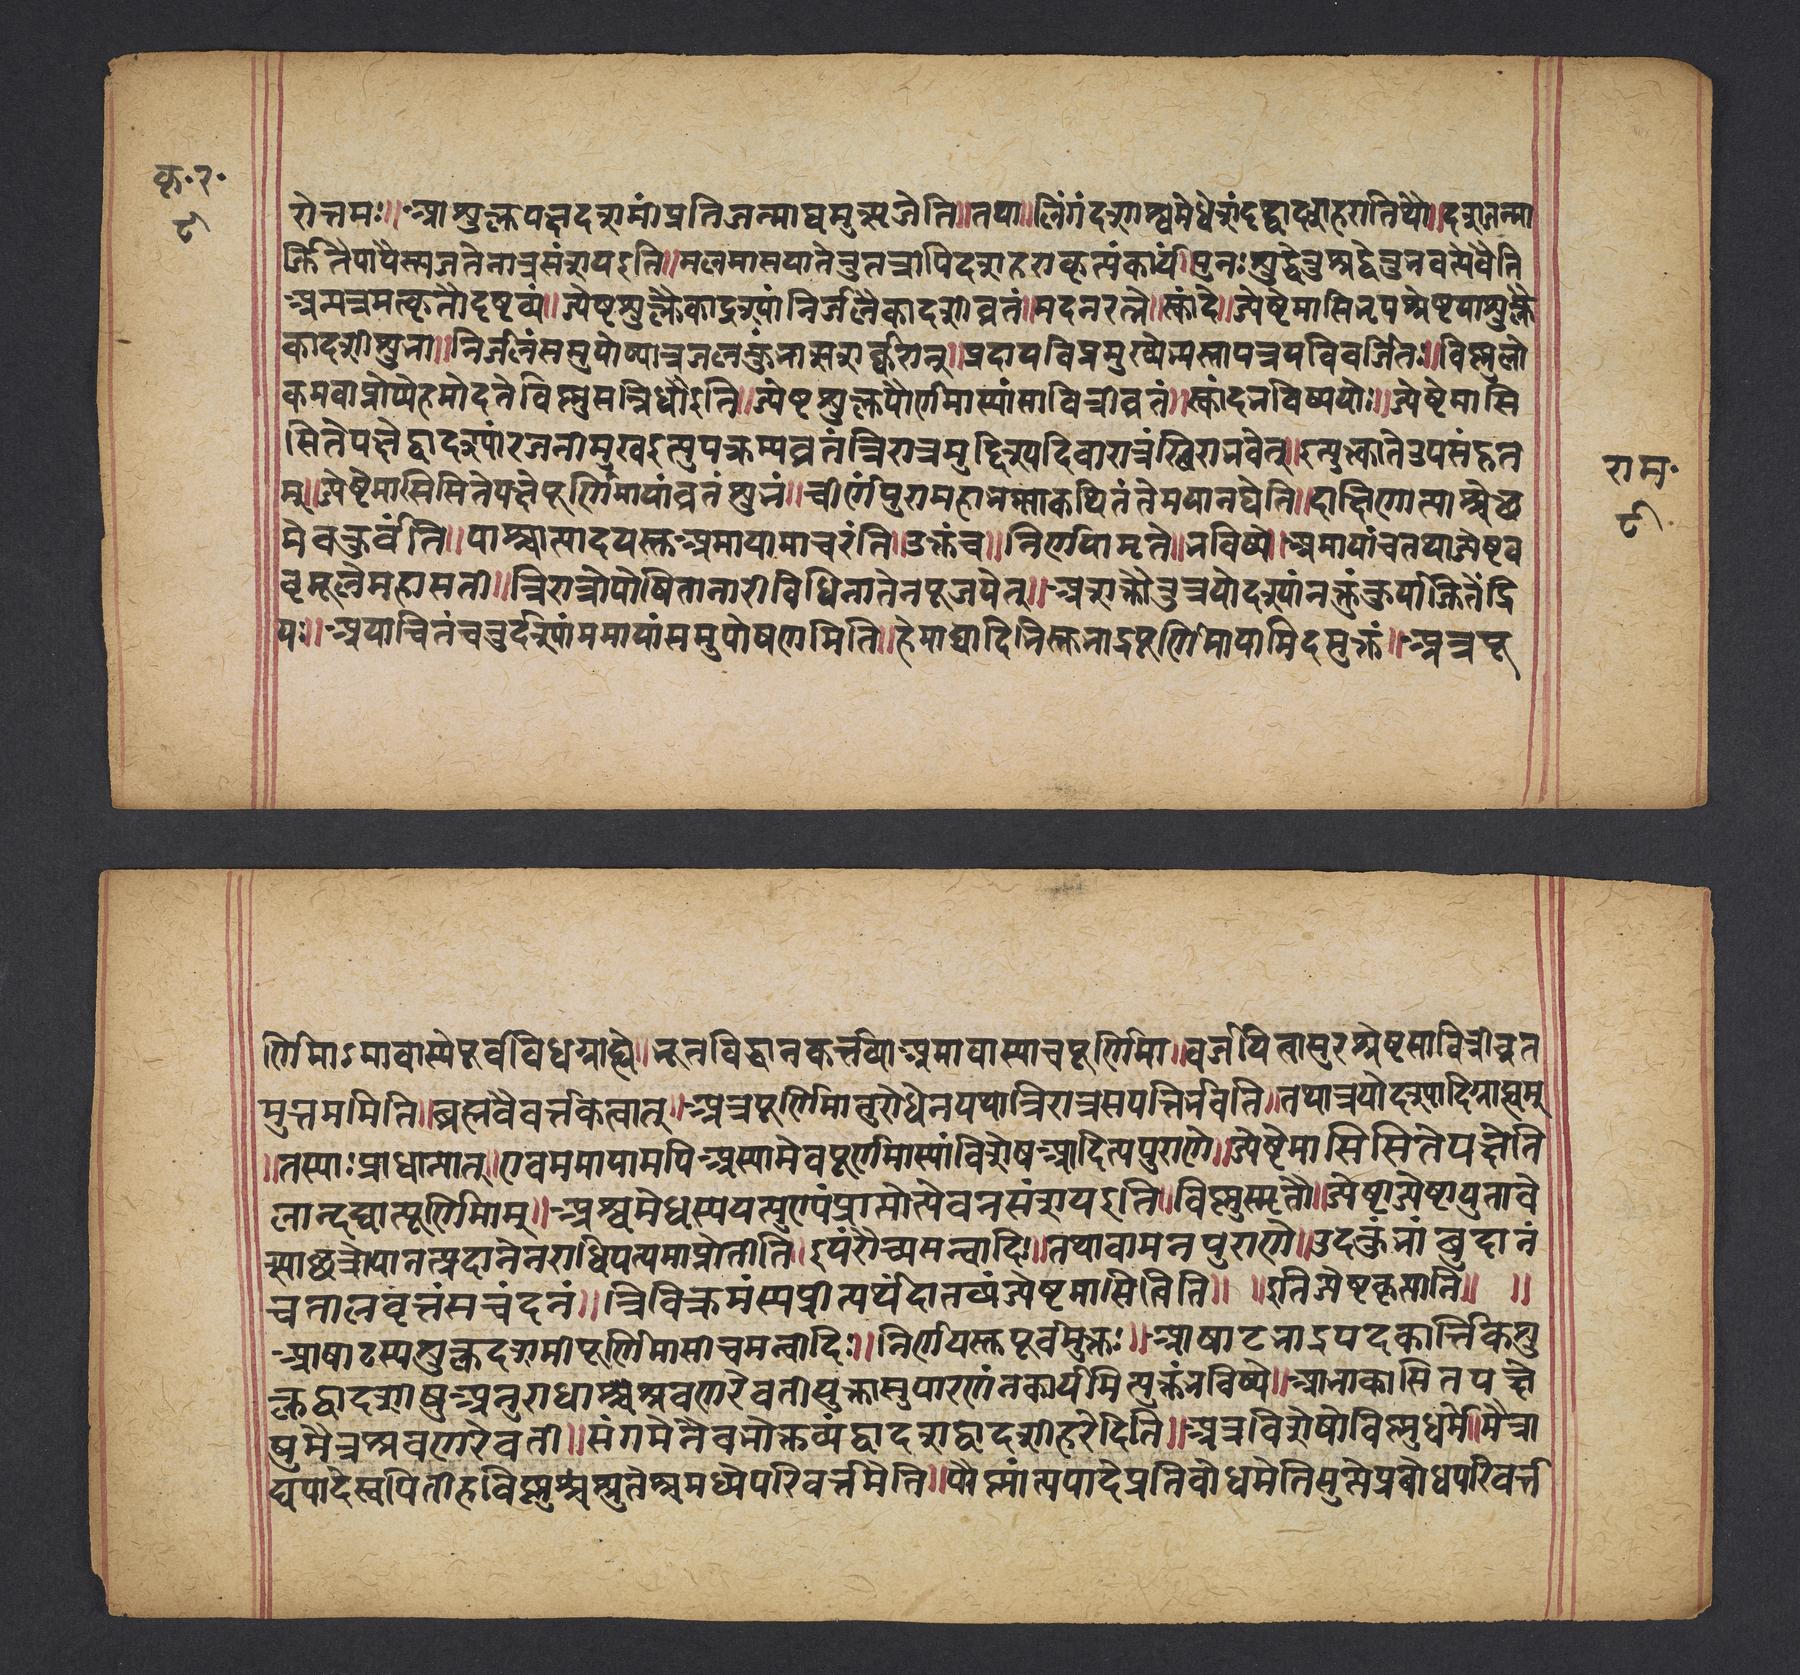 कृ॰र॰
८
रोत्तमः॥ आशुक्लपक्षदशमीं प्रतिजन्माघमुत्सृजेति॥ तथा॥ लिंगं दशाश्वमेधेशं दृष्ट्वा दशहरातिथौ॥ दशजन्मा
र्जितैपापैस्त्यजतेनात्रसंशयइति॥ मलमासपातेतुतत्रापिदशहराकृत्यंकार्यं॥ पुनःशुद्धेतु
अन्यत्रमत्कृतौदृष्टव्यं॥ ज्येष्टशुक्लैकादश्यांनिर्जलैकादशीव्रतं॥ मदनरत्ने॥ स्कांदे॥ ज्येष्टेमासिनृपश्रेष्टयाशुक्लै
कादशीशुभा॥ निर्जलंससुपोष्यात्रजलकुंभान्सशर्करान्॥ प्रदायविप्रमुख्येभ्य विवर्जितः॥ विष्णुलो
कमवाप्नोप्येहमोदतेविष्णुसन्निधौइति॥ ज्येष्टशुक्लपौर्णिमास्यांसावित्रीव्रतं॥ स्कांदभविष्ययोः॥ ज्येष्टेमासि
सितेपक्षेद्वादश्यांरजनीमुखइत्युपक्रम्यव्रतंत्रिरात्रमुद्दिश्यदिवारात्रंस्थिराभवेत्॥ इत्युत्कातेउपसंहृत
म्॥ ज्येष्टेमासिसितेपक्षेपूर्णिमायांव्रतंशुभं॥ चीर्णंपुरामहाभक्त्याकथितंतेमयानघेति॥ दाक्षिणात्याश्चेष्ठ
मेवकुर्वंति॥ पाश्चात्यादयस्तअमायामाचरंति॥ उक्तंच॥ निर्णयामृते॥ भविष्ये॥ अमायांचतथाज्येष्टेव
टमूलेमहासती॥ त्रिरात्रोपोषितानारीविधिनातेनपूजयेत्॥ अशक्तौतुत्रयोदश्यांनक्तंकुर्याज्जितेंद्रि
यः॥ अयाचितंचतुर्दश्यांममायांसमुपोषणमिति॥ हेमाद्यादिनिस्तभाद्रपूर्णिमायामिदमुक्तं॥ अत्रपू
राम॰
८
र्णिमाऽमावास्येपूर्वविधग्राह्ये॥ भूतविद्धानकर्त्तव्याअमावास्याचपूर्णिमा॥ वर्जयित्वासुरश्रेष्टसावित्रीव्रत
मुत्तममिति॥ ब्रह्मवैवर्त्तकेत्वात्॥ अत्रपूर्णिमानुरोधेनयथात्रिरात्रसपत्तिर्भवति॥ तथात्रयोदश्यादिग्राह्यम्
॥ तस्याःप्राधान्यात्॥ एवममायामपिअस्यामेवपूर्णमास्यांविशेषआदित्यपुराणे॥ ज्येष्टेमासिसितेपक्षेति
लान्दद्यात्पूर्णिमाम्॥ अश्वमेधस्ययत्पुण्यंप्राप्नोत्येवनसंशयइति॥ विष्णुस्मृतौ॥ ज्येष्टाज्येष्टायुतावे
त्स्याछत्रोपानत्प्रदानेनराधिपत्यमाप्नोतीति॥ इयंरौच्यमन्वादिः॥ तथावामनपुराणे॥ उदकुंभांबुदानं
चतालवृंत्तंसचंदनं॥ त्रिविक्रमंस्यप्रीत्यर्थंदातव्यंज्येष्टमासित्विति॥ ॥ इतिज्येष्टकृत्यानि॥ ॥
आषाढस्यशुक्लदशमीपूर्णिमासीचमन्वादिः॥ निर्णयस्तपूर्वमुक्तः॥ आषाढभाद्रपदकार्त्तिकशु
क्लद्वादशीषुअनुराधाश्चश्रवणरेवतीयुक्तासुपारणंनकार्यमित्युक्तंभविष्ये॥ आभाकासितपक्षे
षुमैत्रश्रवणरेवती॥ संगमेनैवभोक्तव्यंद्वादशद्वादशीहरेदिति॥ अत्रविशेषोविष्णुधर्मे॥ मैत्रा
द्यपादेस्वपितीहविष्णुश्चश्रुतेश्चमध्येपरिवर्त्तमेति॥ पौष्णांत्यपादेप्रतिबोधमेतिसुप्तेप्रबोधपरिवर्त्त